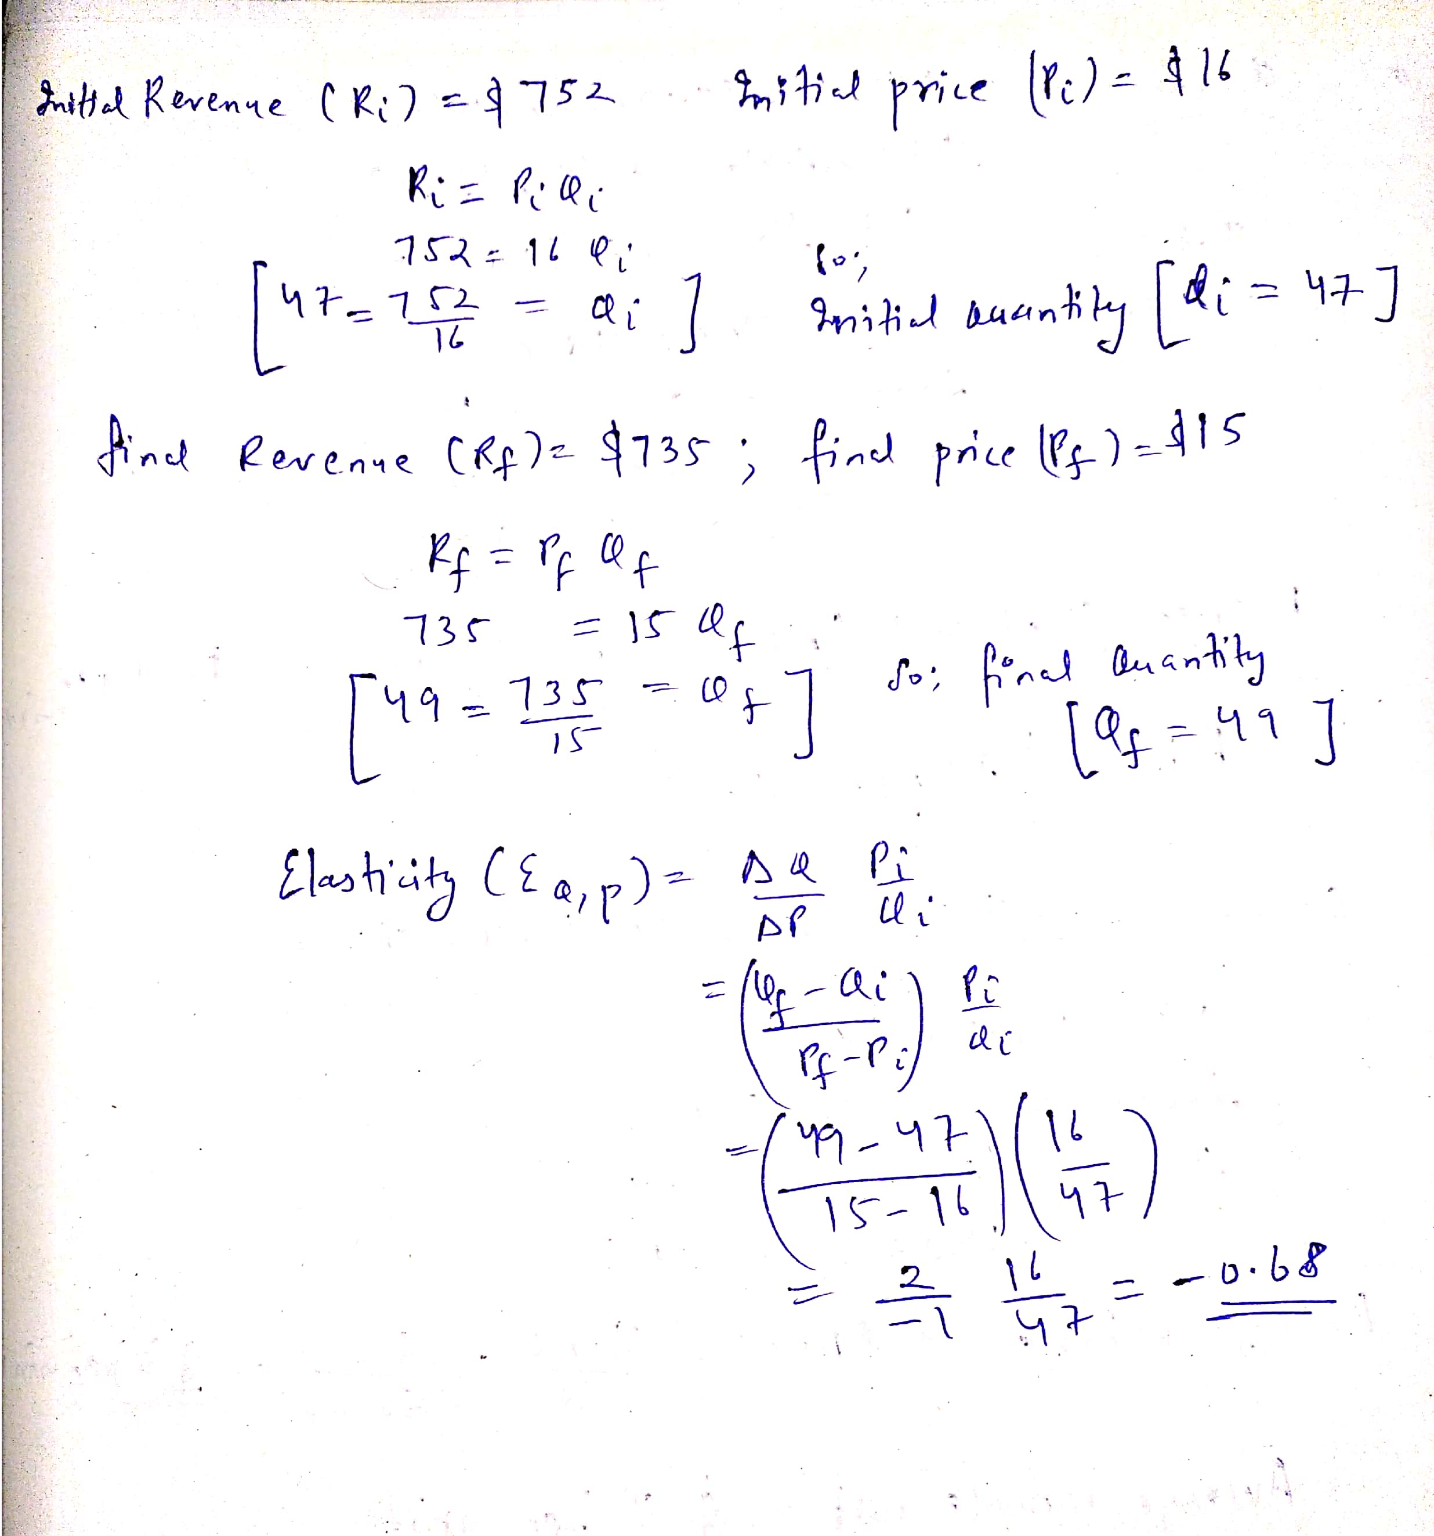 Initial Revenue (Ri) = $752 Initial price (Pi) = $16
Ri = Pi Qi
752 = 16 Qi
[47 = 752/16 = Qi] So; Initial Quantity [Qi = 47]
final Revenue (Rf) = $735 ; final price (Pf) = $15
Rf = Pf Qf
735 = 15 Qf
[49 = 735/15 = Qf] So; final Quantity
[Qf = 49]
Elasticity (Ɛ Q,P) = ΔQ/ΔP Pi/Qi
= (Qf - Qi / Pf - Pi) Pi/Qi
= (49 - 47 / 15 - 16) (16/47)
= 2/-1 16/47 = -0.68